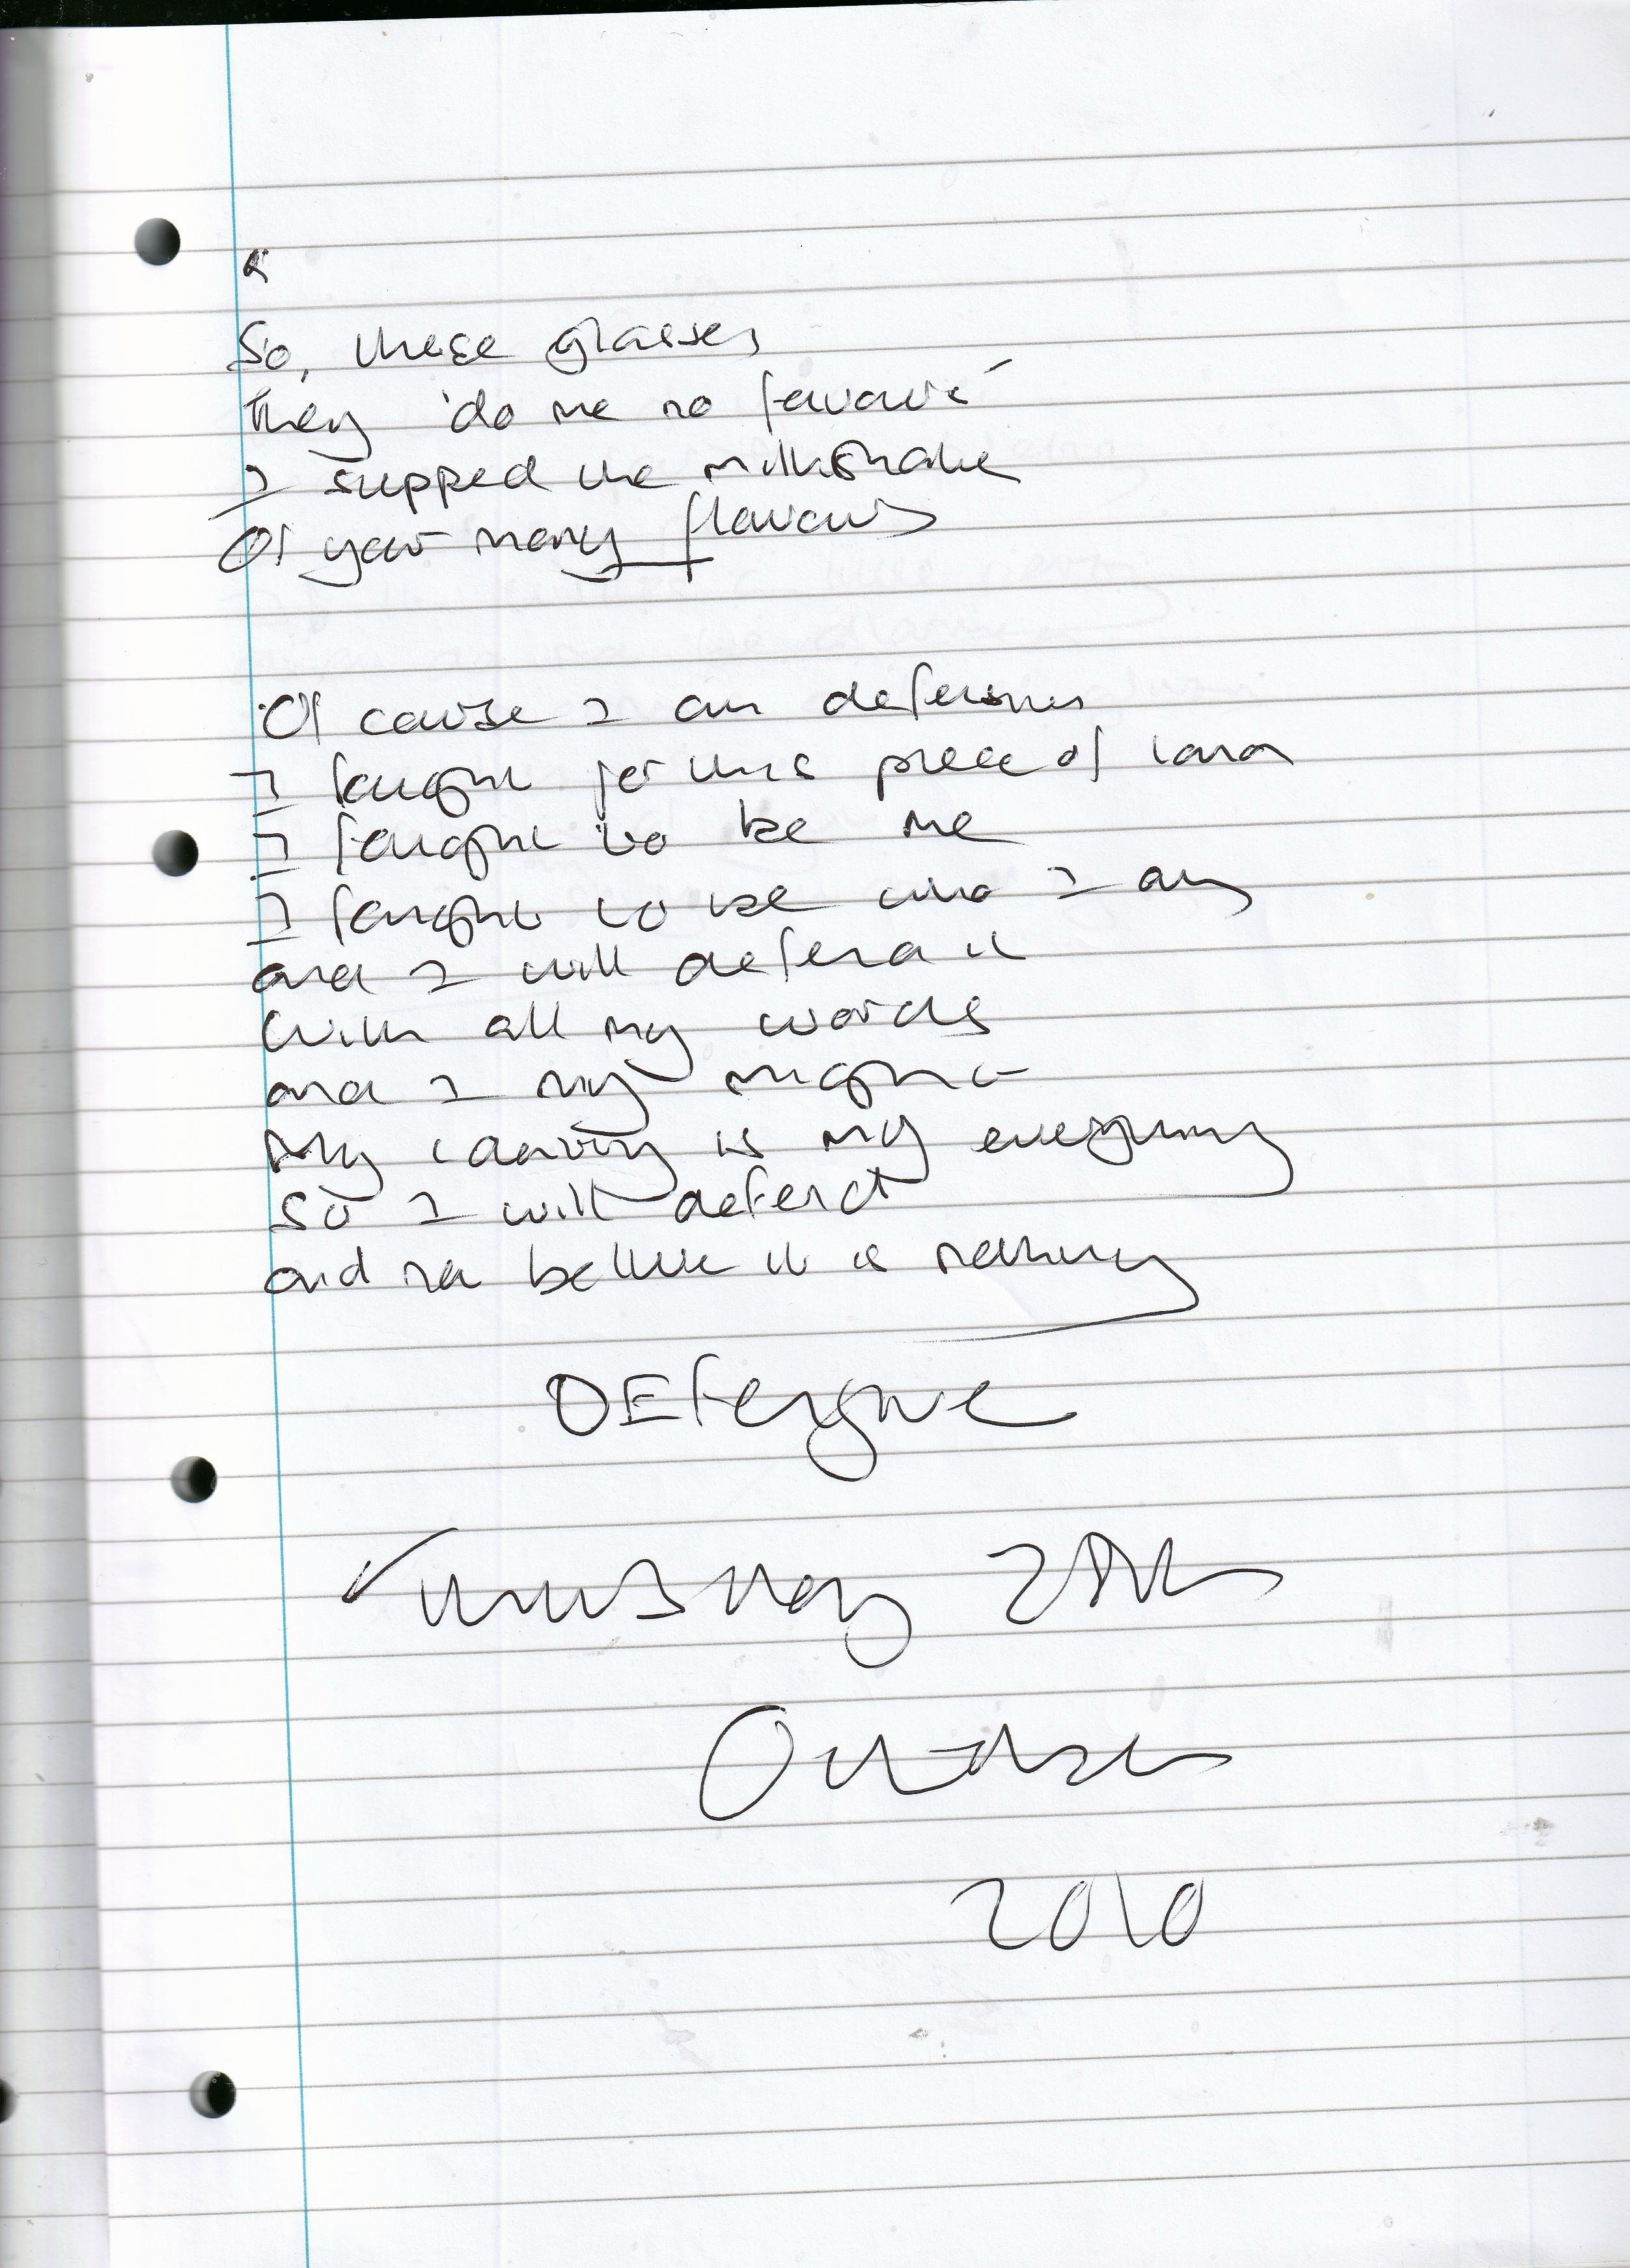 So, these glasses
They do me no favours
I supped the milkshake
Of your many flavours
Of cause I am defensive
I fought for this piece of land
I fought to be me
I fought to be who I am
and I will defend it
With all my words
and I my might
My is my everything
So I will defend
and not believe it is nothing
DEfensive
Thursday 28th
October
2010